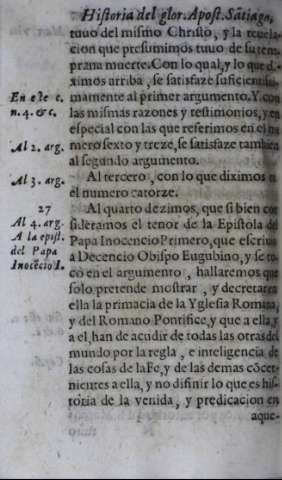 Historia del glor. Apost. Sãtiago,
tuuo del mismo Christo, y la reuela-
cion que presumimos tuuo de su tem
prana muerte. Con lo qual, y lo que d.
ximos arriba, se satisfaze suficientissi-
En este c.
mamente al primer argumento. Y con
n. 4. &c.
las mismas razones y testimonios, y en
especial con las que referimos en el nu
Al 2. arg.
mero sexto y treze, se satisfaze tambien
al segundo argumento.
Al 3. arg.
Al tercero, con lo que diximos n
el numero catorze.
27
Al quarto dezimos, que si bien con
Al 4. arg.
sideramos el tenor de la Epistola del
A la epist.
Papa Inocencio Primero, que escriuio
del Papa
a Decencio Obispo Eugubino, y se to
Inocẽcio I.
co en el argumento, hallaremos que
solo pretende mostrar, y decretar en
ella la primacia de la Yglesia Romana,
y del Romano Pontifice, y que a ella, y
a el, han de acudir de todas las otras del
mundo por la regla, e inteligencia de
las cosas de la Fe, y de las demas cõcer-
nientes a ella, y no difinir lo que es his-
toria de la venida, y predicacion en
aque-